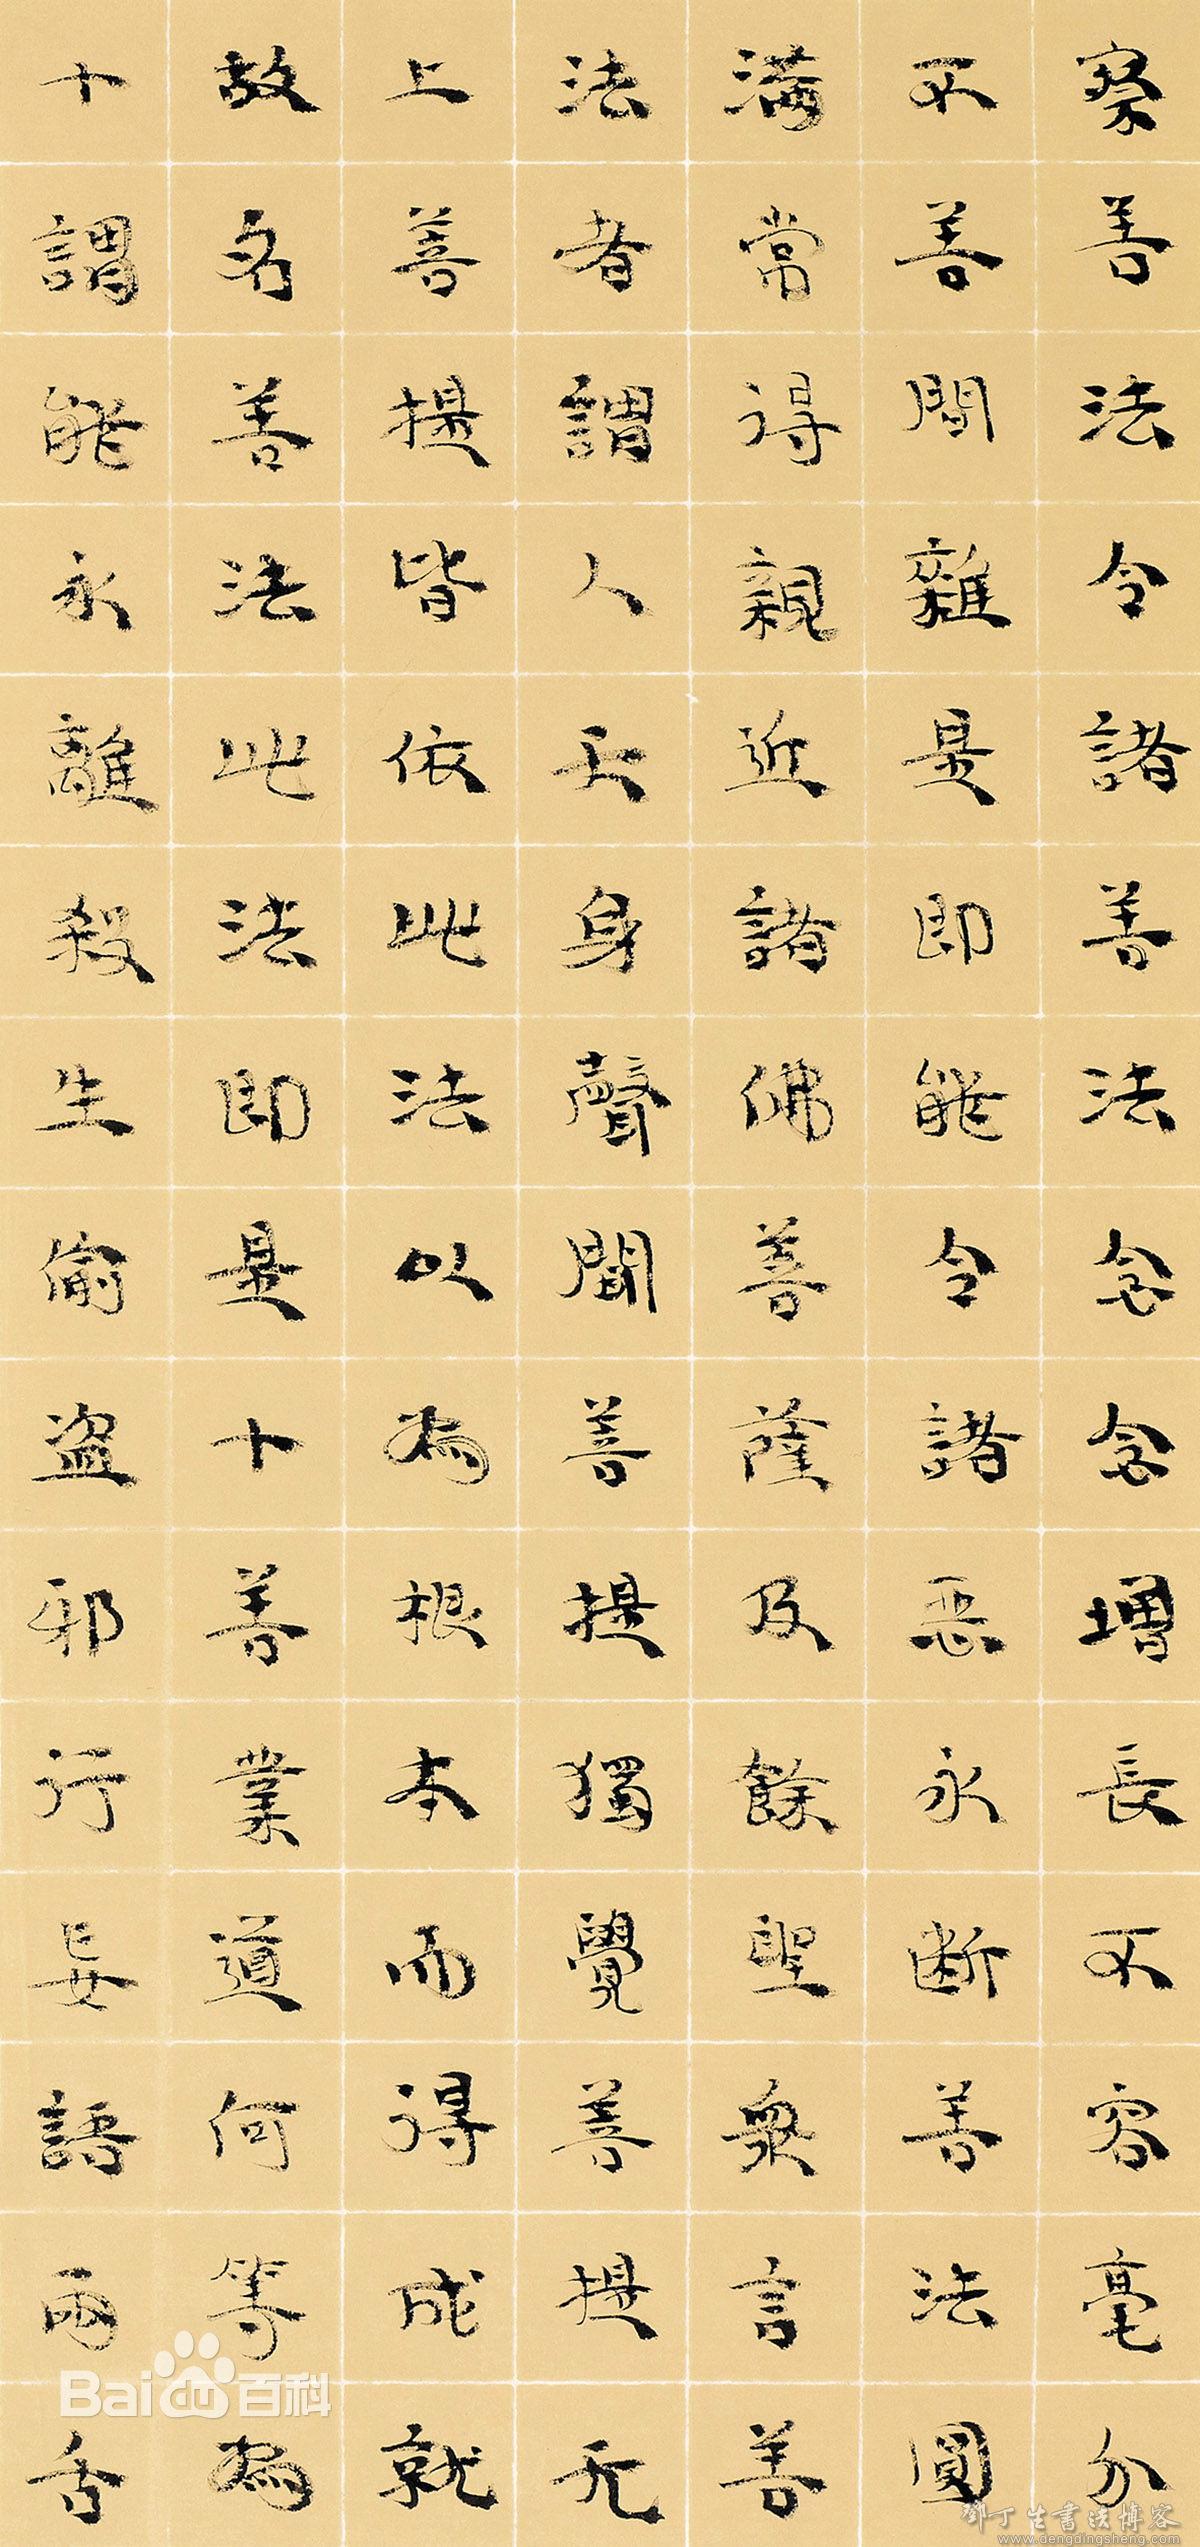 察善法令諸善法念念增長不容毫分
不善間雜是即能令諸惡永断善法圓
满常得親近諸佛菩薩及餘聖衆言善
法者謂人天身聲聞菩提獨覺菩提无
上菩提皆依此法以為根本而得成就
故名善法此法即是十善業道何等為
十謂能永離殺生偷盗邪行妄語兩舌
Bai百科
鄧丁生書法博客
www.dengdingsheng.com